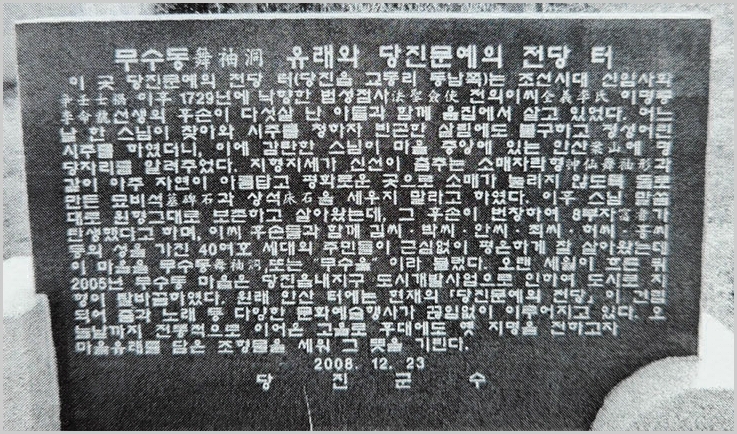 무수동舞袖洞 유래와 당진문예의 전당 터
이 곳 당진문예의 전당 터(당진읍 고동리 동남쪽)는 조선시대 신임사화
辛壬士禍 이후 1729년에 낙향한 법성첨사法聖僉使 전의이씨全義李氏 이명룡
李命龍선생의 후손이 다섯살 난 아들과 함께 움집에서 살고 있었다. 어느
날 한 스님이 찾아와 시주를 청하자 빈곤한 살림에도 불구하고 정성어린
시주를 하였더니, 이에 감탄한 스님이 마을 중앙에 있는 안산案山에 명
당자리를 알려주었다. 지형지세가 신선이 춤추는 소매자락형神仙舞袖形과
같이 아주 자연이 아름답고 평화로운 곳으로 소매가 눌리지 않도록 돌로
만든 묘비석墓碑石과 상석床石을 세우지 말라고 하였다. 이후 스님 말씀
대로 원형그대로 보존하고 살아왔는데, 그 후손이 번창하여 8부자富者가
탄생했다고 하며, 이씨 후손들과 함께 김씨·박씨·안씨·최씨·허씨·홍씨
등의 성을 가진 40여호 세대의 주민들이 근심없이 평온하게 잘 살아왔는데
이 마을을 무수동舞袖洞 또는 "무수울" 이라 불렀다. 오랜 세월이 흐른 뒤
2005년 무수동 마을은 당진읍내지구 도시개발사업으로 인하여 도시로 지
형이 탈바꿈하였다. 원래 안산 터에는 현재의 「당진문예의 전당」이 건립
되어 춤과 노래 등 다양한 문화예술행사가 끊임없이 이루어지고 있다. 오
늘날까지 전통적으로 이어온 고을로 후대에도 옛 지명을 전하고자
마을유래를 담은 조형물을 세워 그 뜻을 기린다.
2008. 12. 23
당 진 군 수